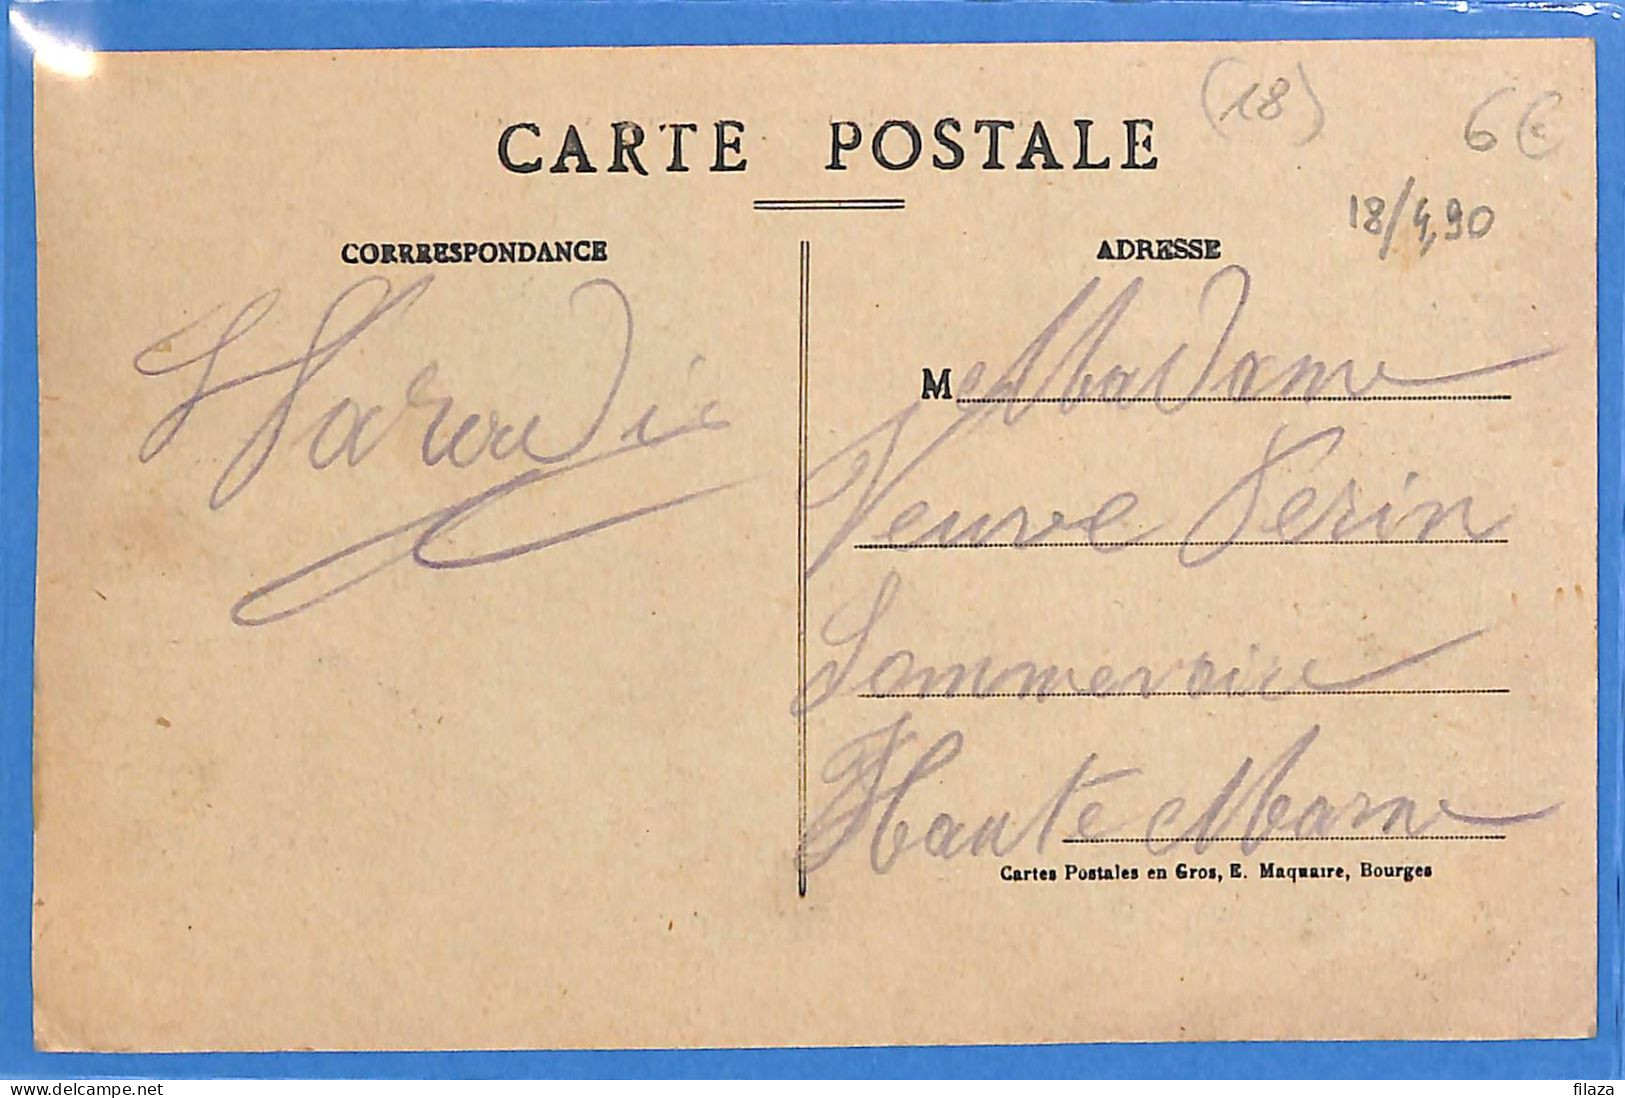 (18)
6€
CARTE POSTALE
18/4,90
CORRRESPONDANCE
ADRESSE
M Madame
Veuve Perin
Sommevoire
Haute Marne
Cartes Postales en Gros, E. Maquaire, Bourges
filaza